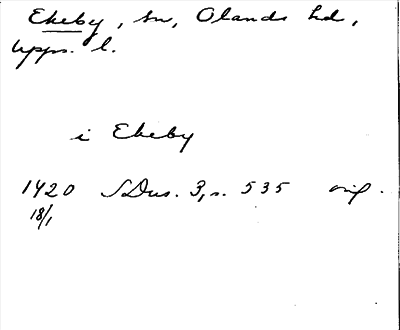 Ekeby, sn, Olands hd,
Upps. l.
i Ekeby
1420 SDns. 3, s. 535 orig.
18/1